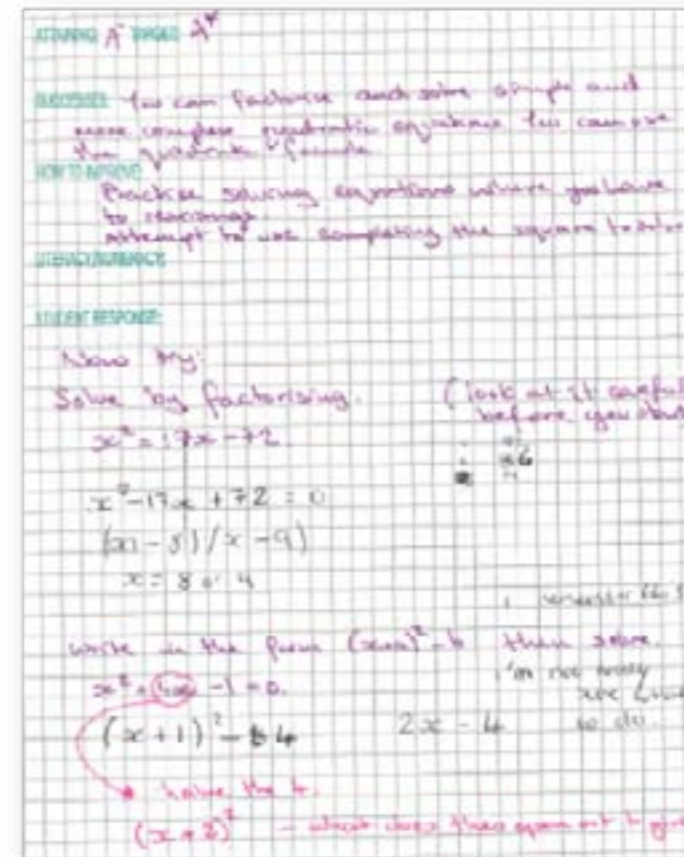 ATTAINING A⁻ TARGET: A*
SUCCESSES: You can factorise and solve simple and
more complex quadratic equations. You can use
the quadratic formula
HOW TO IMPROVE:
Practise solving equations where you have
to rearrange
Attempt to use completing the square to solve
LITERACY/NUMERACY:
STUDENT RESPONSE:
Now try:
Solve by factorising. (look at it
before you start
x² = 17x - 72
x² - 17x + 72 = 0
(x - 8)(x - 9)
x = 8 or
remember
write in the form (x+a)² - b then solve.
x² + 4x - 1 = 0. I'm not really
sure
(x + 1)² - 4 2x - 4 to do.
halve the 4.
(x + 2)² - what does this